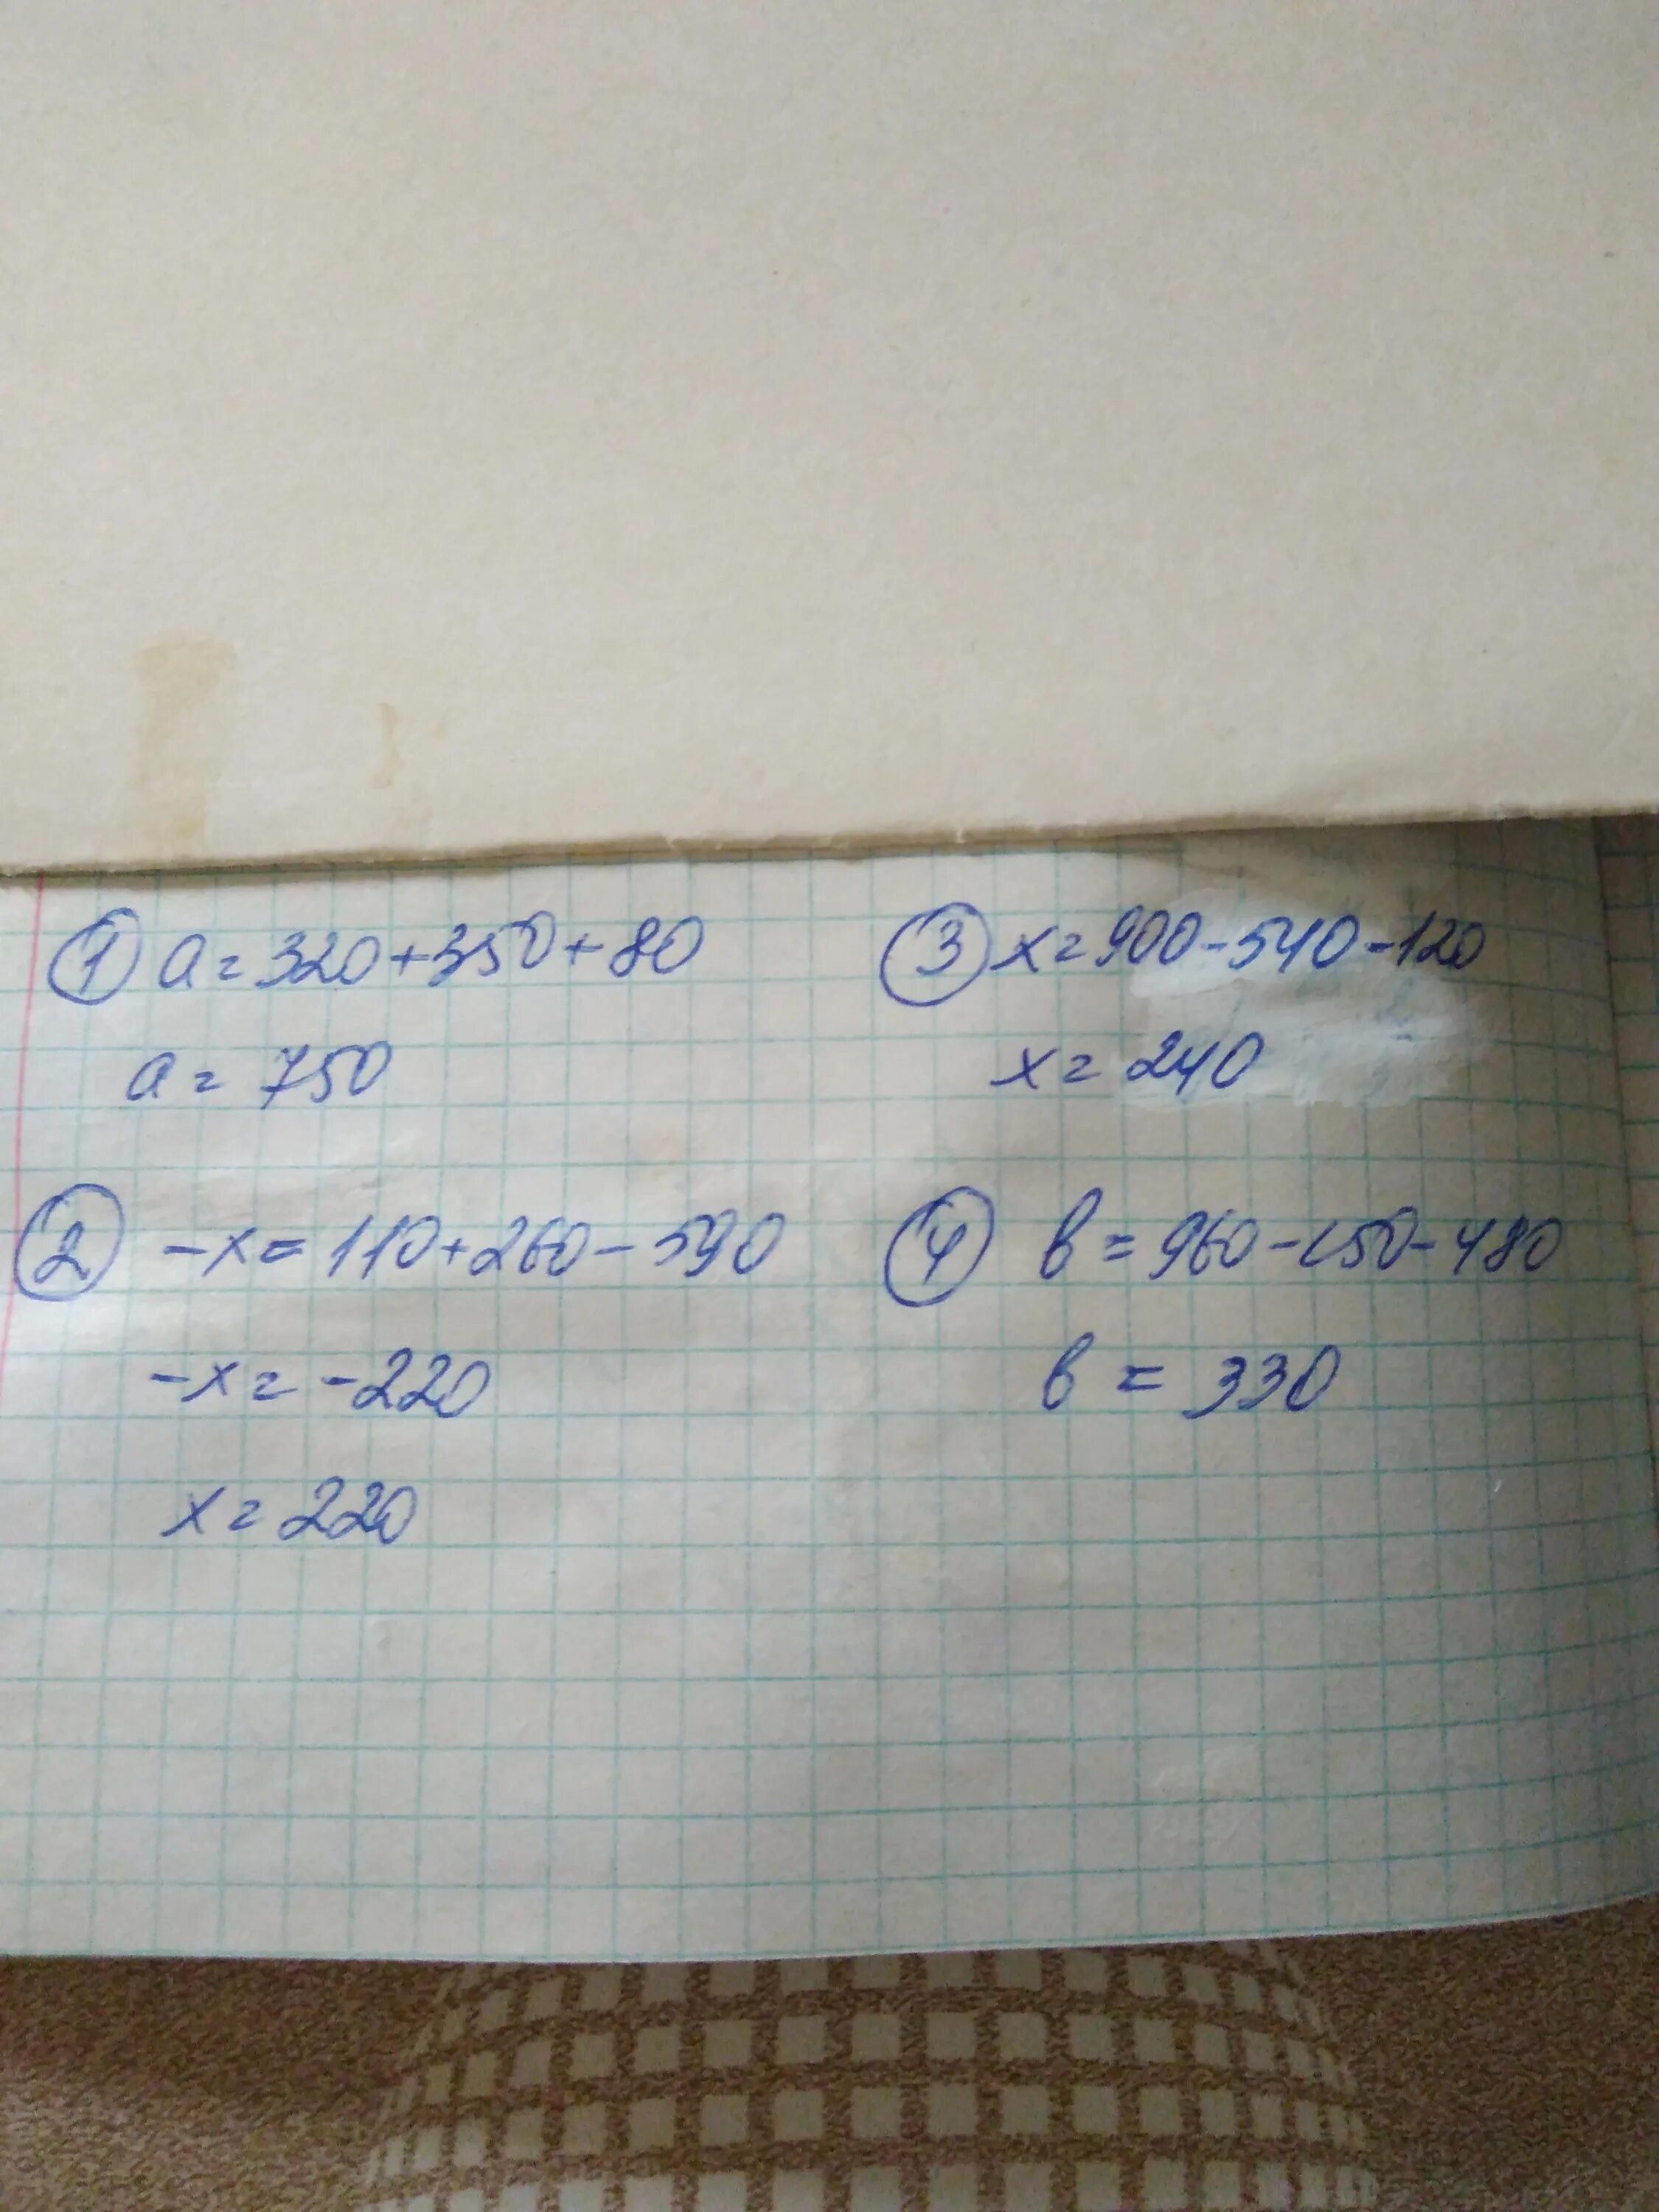 ① a=320+350+80
a=750
② -x=110+260-590
-x=-220
x=220
③ x=900-540-120
x=240
④ в=960-150-480
в=330